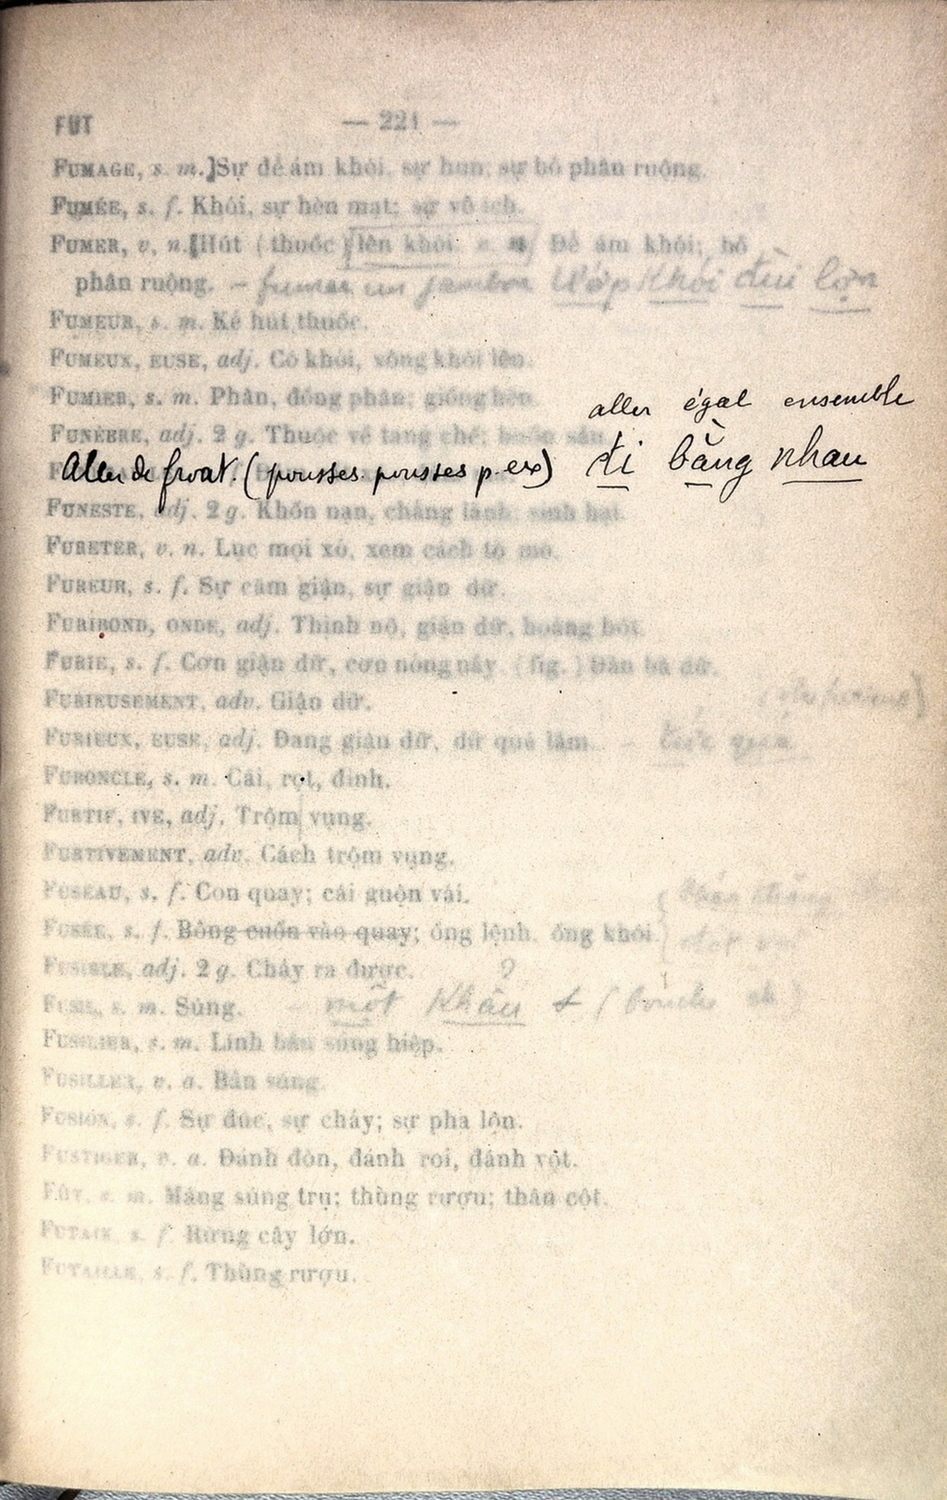 FUT — 221 —
FUMAGE, s. m.] Sự để ám khói, sự hun; sự bỏ phân ruộng.
FUMÉE, s. f. Khói, sự hèn mạt; sự vô ích.
FUMER, v. n. [Hút (thuốc) lên khói; v. a. Để ám khói; bỏ
phân ruộng. – fumer un jambon Ướp Khói đùi lợn
FUMEUR, s. m. Kẻ hút thuốc.
FUMEUX, EUSE, adj. Có khói, xông khói lên.
FUMIER, s. m. Phân, đống phân; giống hèn.
aller égal ensemble
FUNÈBRE, adj. 2 g. Thuộc về tang chế; buồn sầu.
Aller de front. (pousses pousses p. ex) đi bằng nhau
FUNESTE, adj. 2 g. Khốn nạn, chẳng lành, sinh hại.
FURETER, v. n. Lục mọi xó, xem cách tọ mọ.
FUREUR, s. f. Sự căm giận, sự giận dữ.
FURIBOND, ONDE, adj. Thịnh nộ, giận dữ, hoảng hốt.
FURIE, s. f. Cơn giận dữ, cơn nóng nảy. (fig.) Đàn bà dữ.
FURIEUSEMENT, adv. Giận dữ.
FURIEUX, EUSE, adj. Đang giận dữ, dữ quá lắm. – tức quá
FURONCLE, s. m. Cái, rọt, đinh.
FURTIF, IVE, adj. Trộm vụng.
FURTIVEMENT, adv. Cách trộm vụng.
FUSEAU, s. f. Con quay; cái guộn vải.
FUSÉE, s. f. Bông cuốn vào quay; ống lệnh, ống khói.
FUSIBLE, adj. 2 g. Chảy ra được. ?
FUSIL, s. m. Súng. – một Khẩu +
FUSILIER, s. m. Lính bắn súng hiệp.
FUSILLER, v. a. Bắn súng.
FUSION, s. f. Sự đúc, sự chảy; sự pha lộn.
FUSTIGER, v. a. Đánh đòn, đánh roi, đánh vọt.
FÛT, s. m. Máng súng trụ; thùng rượu; thân cột.
FUTAIE, s. f. Rừng cây lớn.
FUTAILLE, s. f. Thùng rượu.